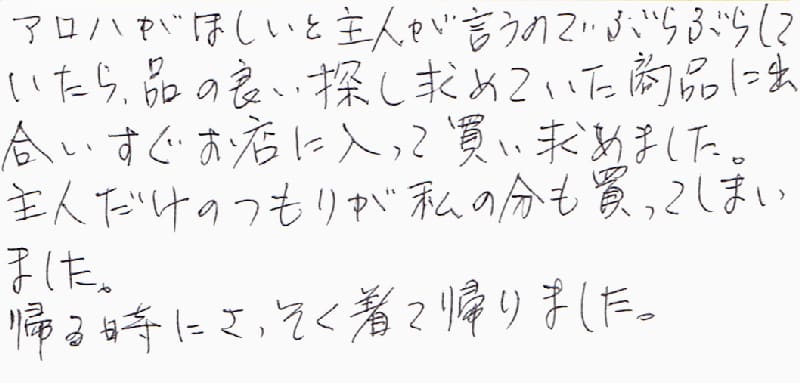 アロハがほしいと主人が言うのでぶらぶらして
いたら、品の良い探し求めていた商品に出
合いすぐお店に入って買い求めました。
主人だけのつもりが私の分も買ってしまい
ました。
帰る時にさっそく着て帰りました。